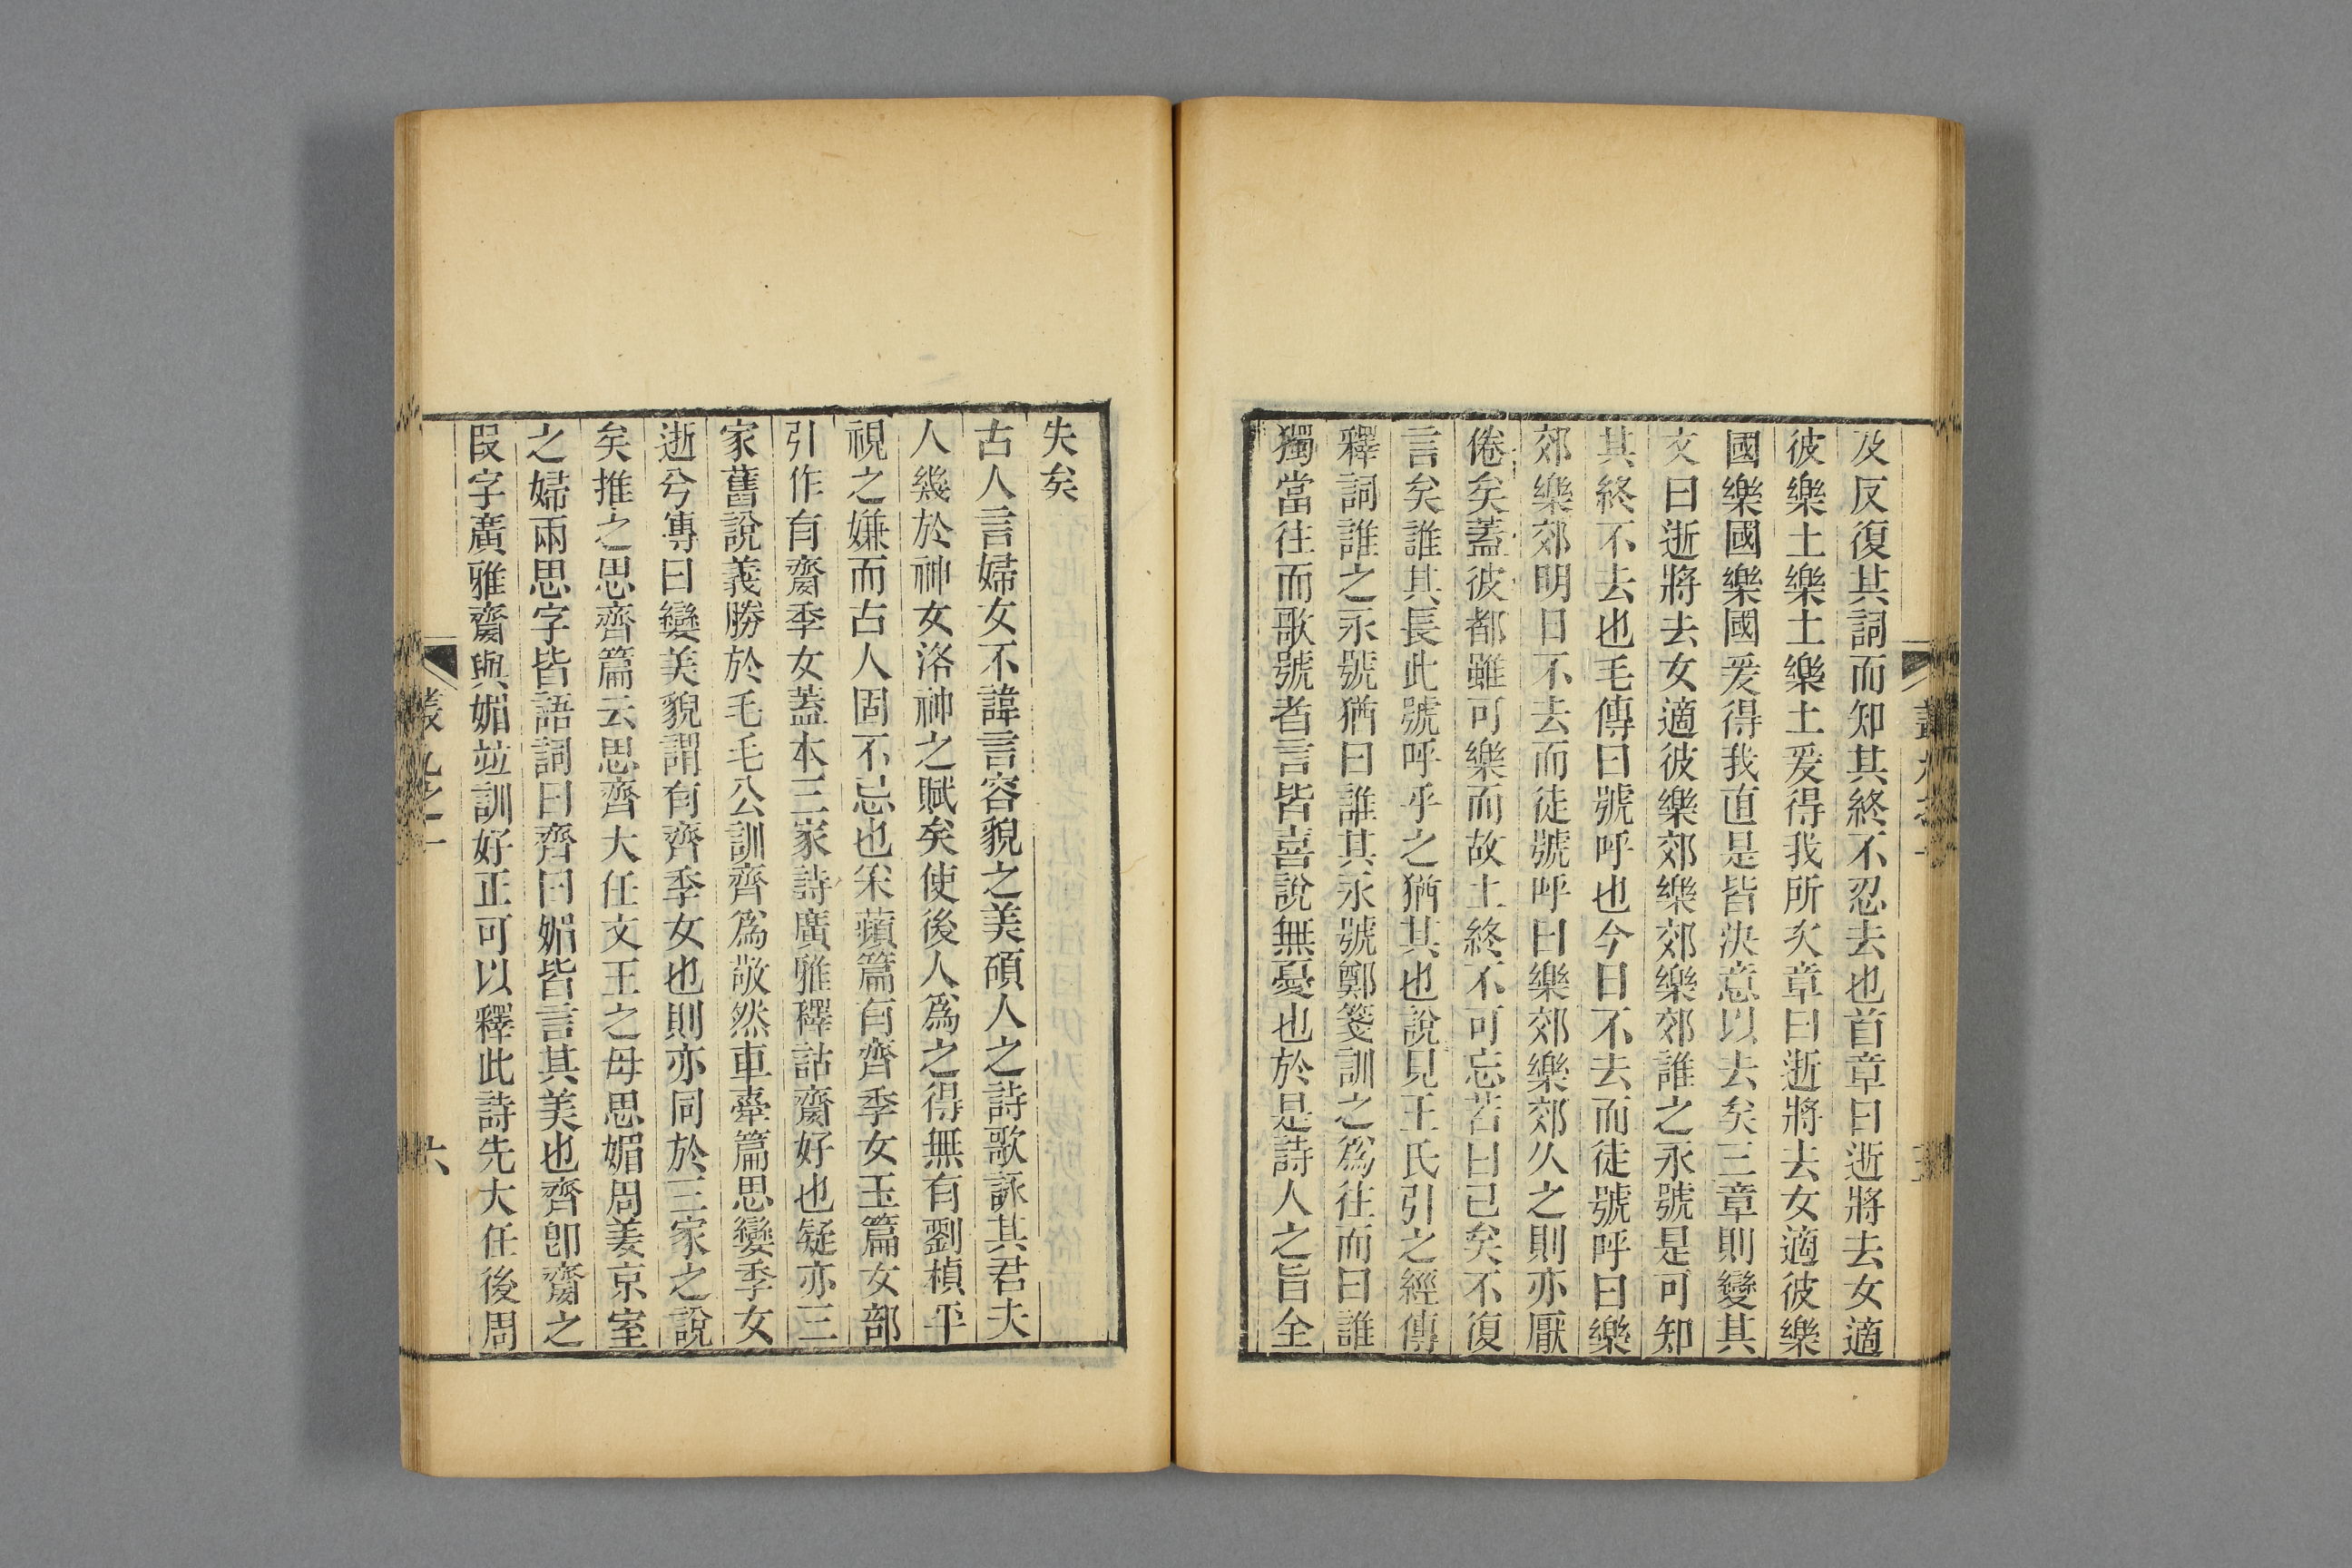 及反復其詞而知其終不忍去也首章曰逝將去女適
彼樂土樂土樂土爰得我所次章曰逝將去女適彼樂
國樂國樂國爰得我直是皆決意以去矣三章則變其
文曰逝將去女適彼樂郊樂郊樂郊誰之永號是可知
其終不去也毛傳曰號呼也今日不去而徒號呼曰樂
郊樂郊明日不去而徒號呼曰樂郊樂郊久之則亦厭
倦矣蓋彼都雖可樂而故土終不可忘若曰已矣不復
言矣誰其長此號呼乎之猶其也說見王氏引之經傳
釋詞誰之永號猶曰誰其永號鄭箋訓之爲往而曰誰
獨當往而歌號者言皆喜說無憂也於是詩人之旨全
失矣
古人言婦女不諱言容貌之美碩人之詩歌詠其君夫
人幾於神女洛神之賦矣使後人爲之得無有劉楨平
視之嫌而古人固不忌也采蘋篇有齊季女玉篇女部
引作有齌季女蓋本三家詩廣雅釋詁齌好也疑亦三
家舊說義勝於毛毛公訓齊爲敬然車舝篇思孌季女
逝兮傳曰孌美貌謂有齊季女也則亦同於三家之說
矣推之思齊篇云思齊大任文王之母思媚周姜京室
之婦兩思字皆語詞曰齊曰媚皆言其美也齊卽齌之
叚字廣雅齌與媚竝訓好正可以釋此詩先大任後周
六